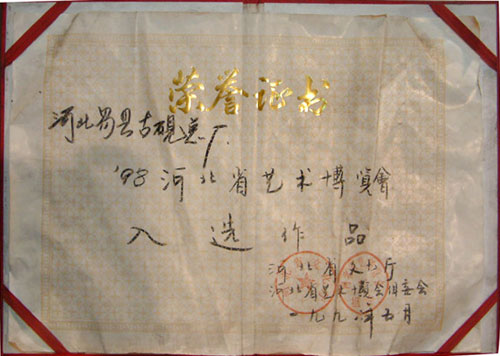 荣誉证书
河北易县古硯艺厂
'98河北省艺术博览會
入选作品
河北省文化厅
河北省艺术博览会组委会
一九九八年五月